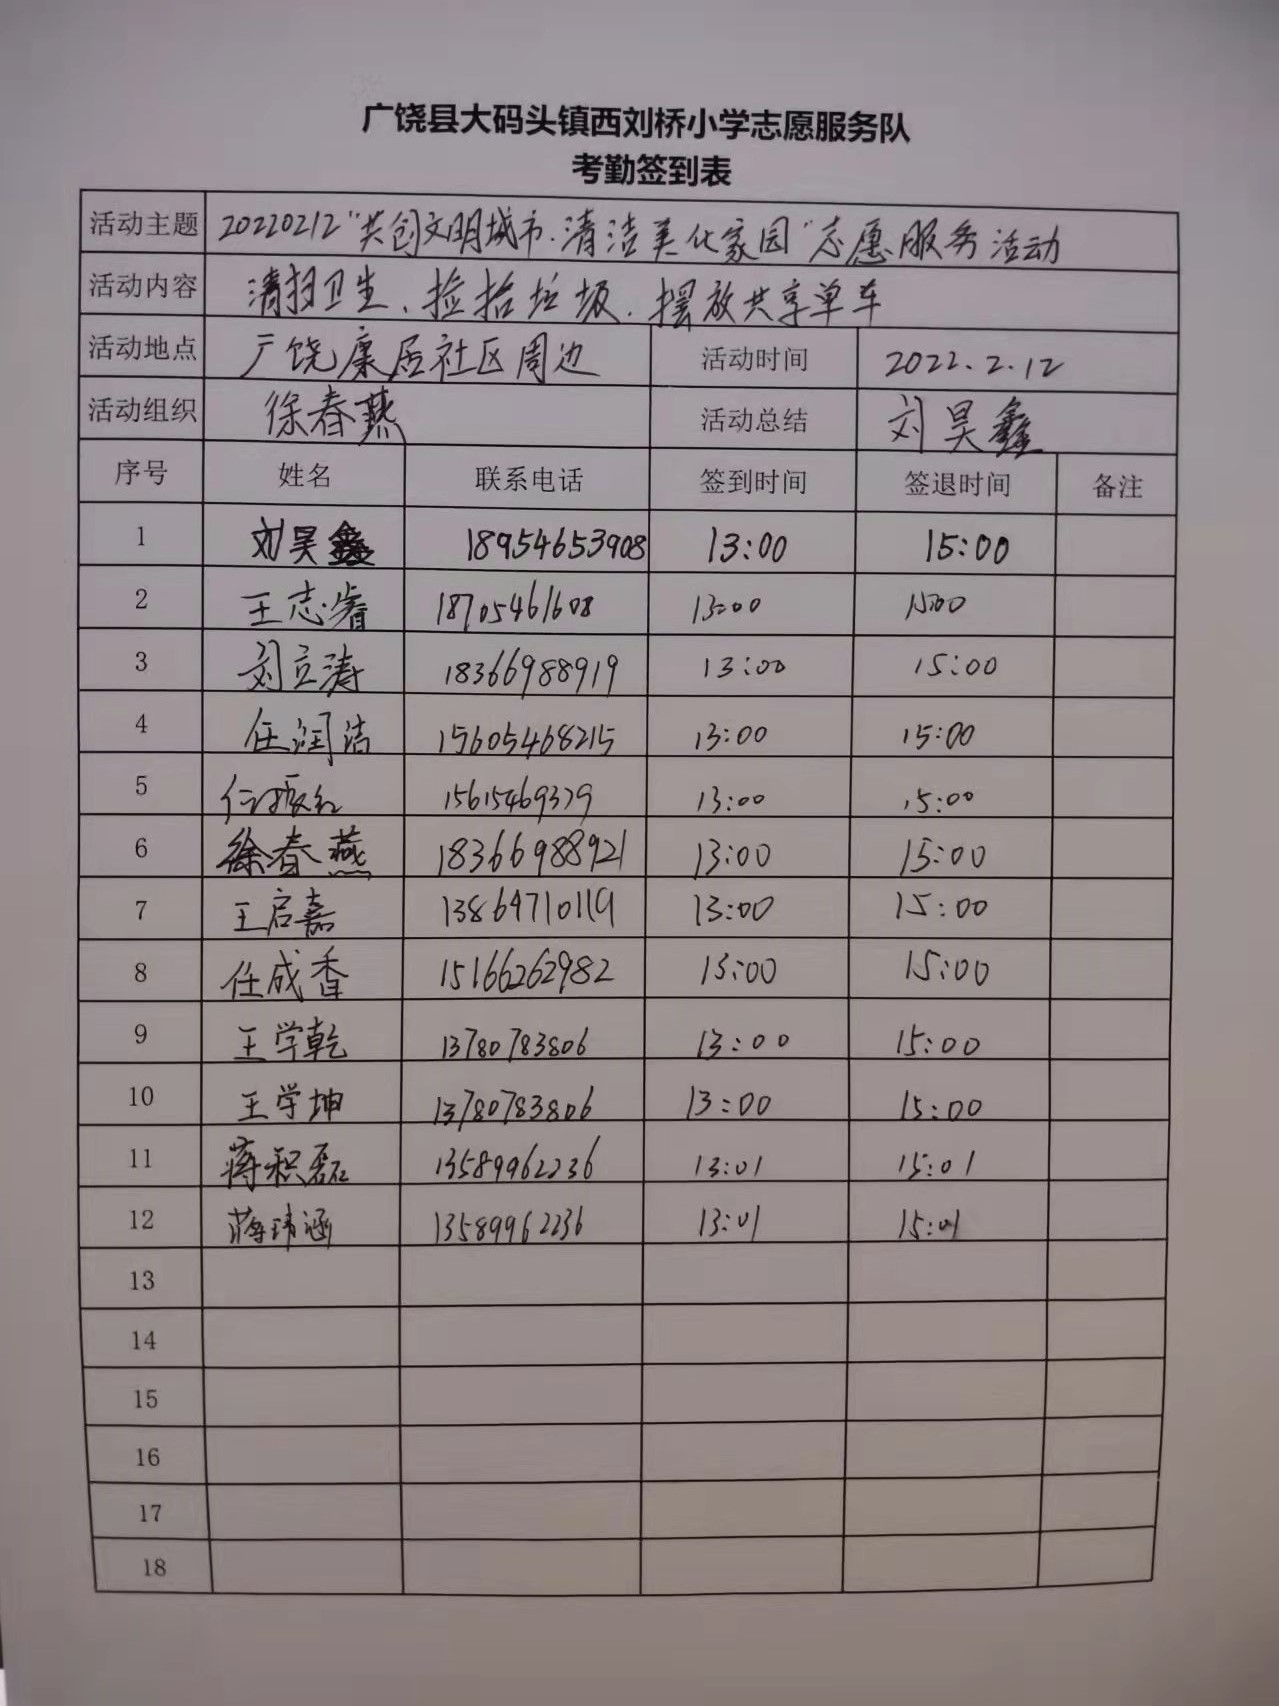 广饶县大码头镇西刘桥小学志愿服务队
考勤签到表
活动主题 20220212“共创文明城市.清洁美化家园”志愿服务活动
活动内容 清扫卫生、捡拾垃圾.摆放共享单车
活动地点 广饶康居社区周边 活动时间 2022.2.12
活动组织 徐春燕 活动总结 刘昊鑫
序号 姓名 联系电话 签到时间 签退时间 备注
1 刘昊鑫 18954653908 13:00 15:00
2 王志睿 18705461608 13:00 15:00
3 刘立涛 18366988919 13:00 15:00
4 任润洁 15605468215 13:00 15:00
5 任振红 15615469379 13:00 15:00
6 徐春燕 18366988921 13:00 15:00
7 王启嘉 13864710119 13:00 15:00
8 任成香 15166262982 13:00 15:00
9 王学乾 13780783806 13:00 15:00
10 王学坤 13780783806 13:00 15:00
11 蒋积磊 13589962236 13:01 15:01
12 蒋玮涵 13589962236 13:01 15:01
13
14
15
16
17
18